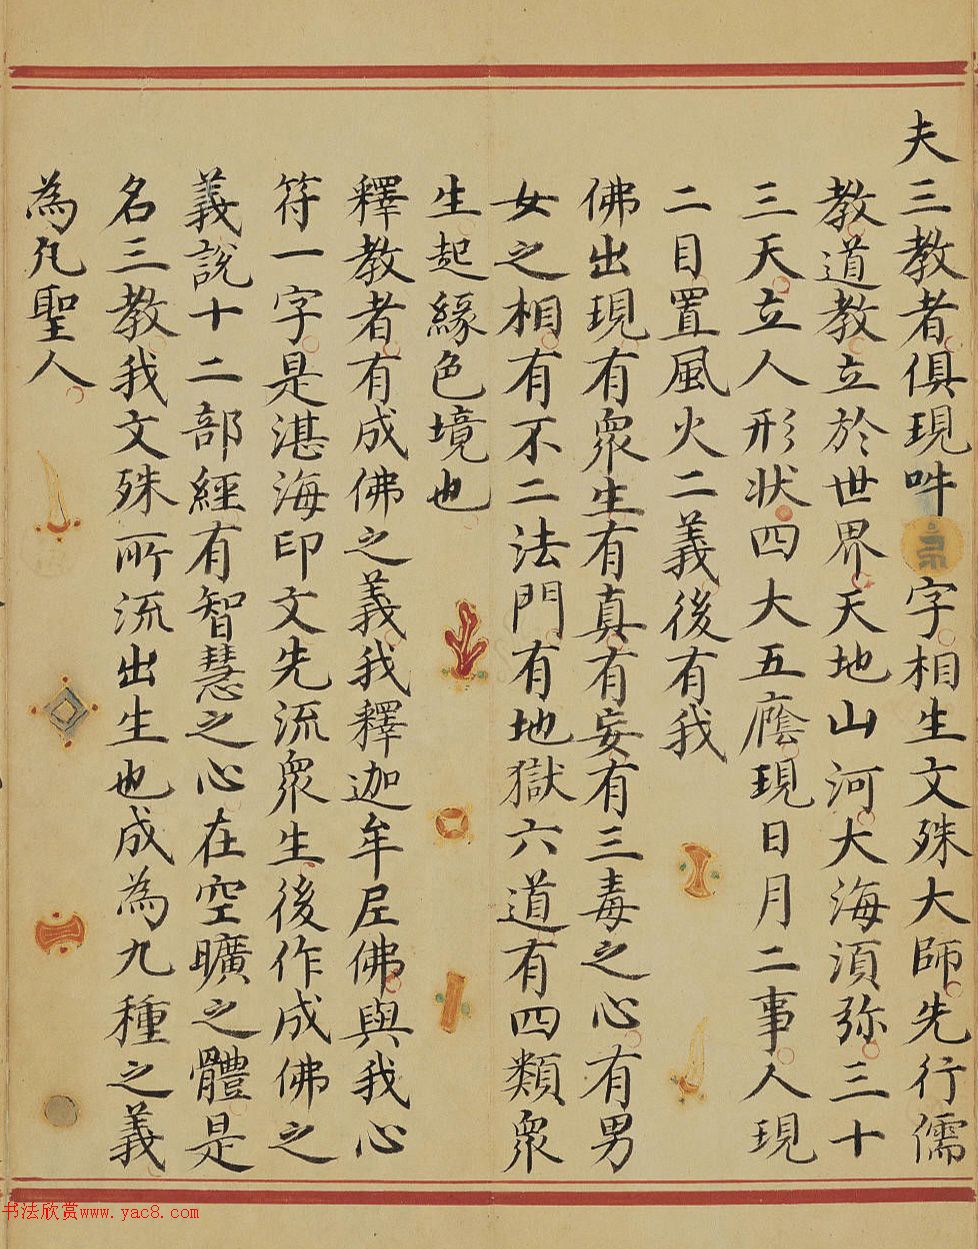 夫三教者俱現吽字相生文殊大師先行儒
教道教立於世界天地山河大海須弥三十
三天立人形状四大五廕現日月二事人現
二目置風火二義後有我
佛出現有衆生有真有妄有三毒之心有男
女之相有不二法門有地獄六道有四類衆
生起緣色境也
釋教者有成佛之義我釋迦牟尼佛與我心
符一字是湛海印文先流衆生後作成佛之
義說十二部經有智慧之心在空曠之體是
名三教我文殊所流出生也成為九種之義
為凡聖人
书法欣赏www.yac8.com